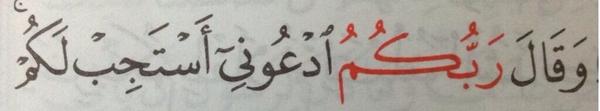 وَقَالَ رَبُّكُمُ ٱدْعُونِيٓ أَسْتَجِبْ لَكُمْۚ